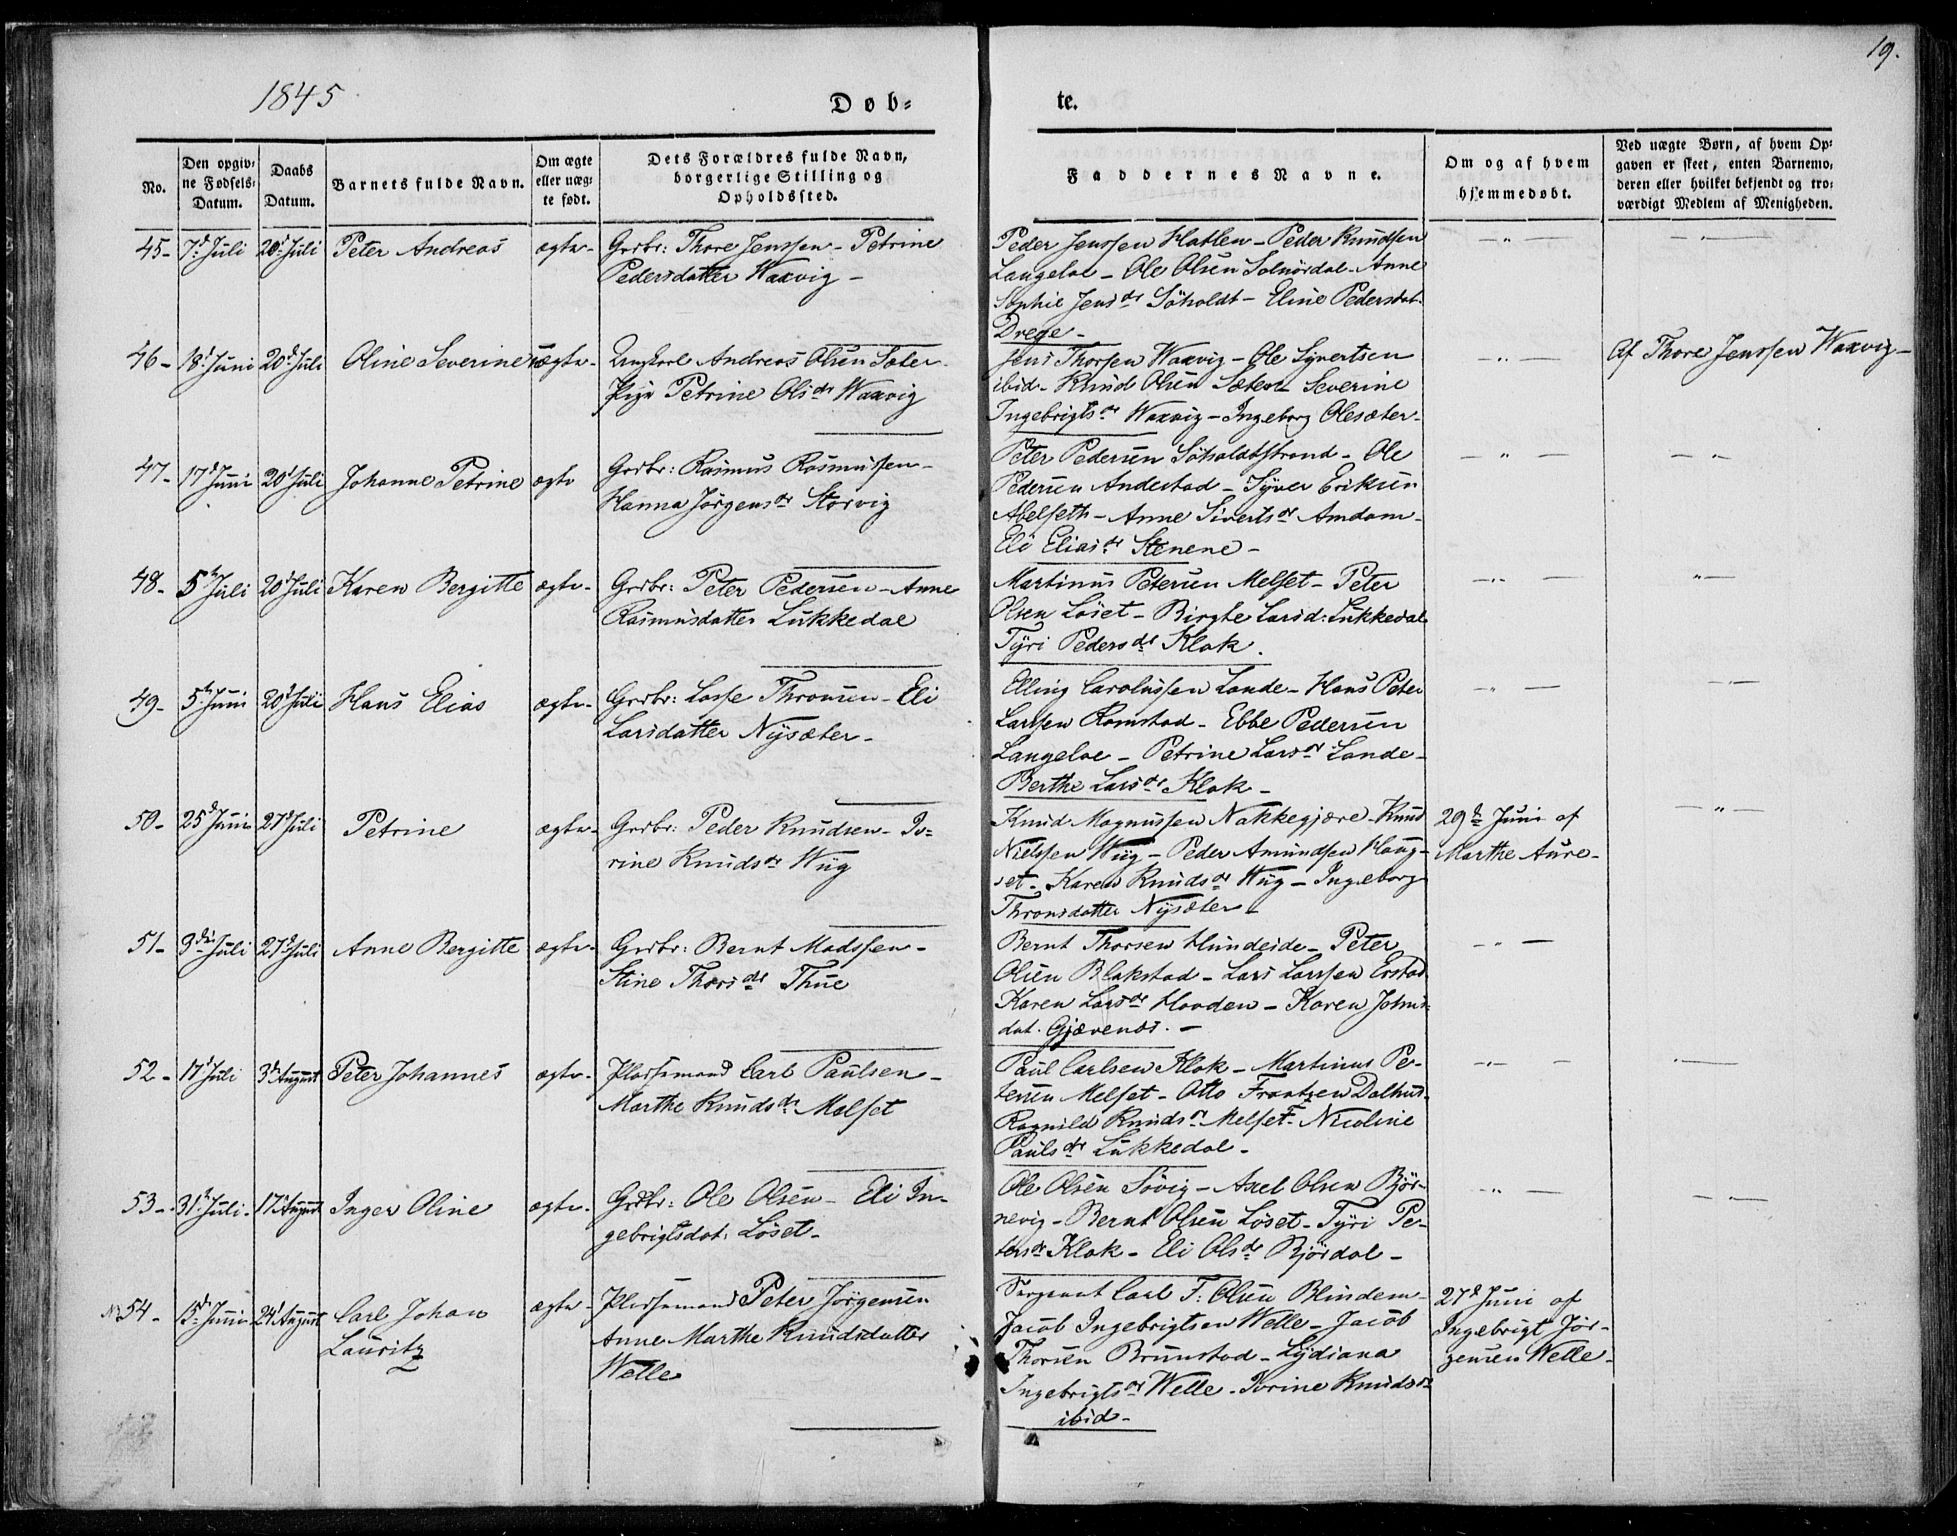 19.
1845
Døb-
te.
No.
Den opgiv-
ne Fødsels-
Datum.
Daabs
Datum.
Barnets fulde Navn.
Om ægte
eller uæg-
te født.
Dets Forældres fulde Navn,
borgerlige Stilling og
Opholdssted.
Faddernes Navne.
Om og af hvem
hjemmedøbt.
Ved uægte Børn, af hvem Op-
gaven er skeet, enten Barnemo-
deren eller hvilket bekjendt og tro-
værdigt Medlem af Menigheden.
45- 7d Juli 20d Juli Peter Andreas ægte- Grdbr: Thore Jenssen - Petrine
Pedersdatter Waxvig -
Peder Jenssen Hatlen - Peder Knudsen
Langeloe - Ole Olsen Solnördal - Anne
Sophie Jensdr Söholdt - Eline Pedersdat.
Drege -
46- 18d Juni 20d Juli Oline Severine uægte- Ungkarl Andreas Olsen Sæter-
Pige Petrine Olsdr Waxvig
Jens Thorsen Waxvig - Ole Syvertsen
ibid - Knud Olsen Sæter - Severine
Ingebrigtsdr Waxvig - Ingeborg Olesæter-
Af Thore Jenssen Waxvig -
47- 17d Juni 20d Juli Johanne Petrine ægte Grdbr: Rasmus Rasmussen -
Hanna Jörgensdr Storvig
Peter Pedersen Söholdtstrand - Ole
Pedersen Andestad - Syver Eriksen
Abelseth - Anne Sivertsdr Amdam -
Eli Eliasdr Stenene -
48- 5te Juli 20d Juli Karen Bergitte ægte- Grdbr: Peter Pedersen - Anne
Rasmusdatter Lukkedal
Martinus Petersen Melset - Peter
Olsen Löset - Birgte Larsd: Lukkedal
Tyri Pedersdr Klok.
49- 5te Juni 20d Juli Hans Elias ægte- Grdbr: Lasse Thronsen - Eli
Larsdatter Nysæter -
Elling Carolussen Lande - Hans Peter
Larssen Ramstad - Ebbe Pedersen
Langeloe - Petrine Larsdr Lande -
Berthe Larsdr Klok -
50- 25d Juni 27d Juli Petrine ægte- Grdbr: Peder Knudsen - Jo-
rine Knudsdr Wiig
Knud Magnussen Nakkegjære - Knud
Nielssen Wiig - Peder Amundsen Haug-
set - Karen Knudsdr Wiig - Ingeborg
Thronsdatter Nysæter -
29de Juni af
Marthe Aure -
51- 3die Juli 27d Juli Anne Bergitte ægte- Grdbr: Bernt Madssen -
Stine Thorsdr Thue
Bernt Thorsen Hundeide - Peter
Olsen Blakstad - Lars Larssen Erstad
Karen Larsdr Hovden - Karen Johns-
dat. Gjævenes. -
52- 17d Juli 3de August Peter Johannes ægte- Pladsemand Carl Paulsen -
Marthe Knudsdr Melset
Paul Carlsen Klok - Martinus Pe-
tersen Melset - Otto Frantzen Dalhus
Ragnild Knudsdr Melset - Nicoline
Paulsdr Lukkedal -
53- 31te Juli 17d August Inger Oline ægte- Grdbr: Ole Olsen - Eli In-
gebrigtsdat: Löset -
Ole Olsen Sövig - Axel Olsen Björ-
nevig - Bernt Olsen Löset - Tyri Pe-
tersdr Klok - Eli Olsdr Bjørdal -
54- 15d Juni 24d August Carl Johan
Lauritz
ægte- Pladsemand Peter Jörgensen
Anne Marthe Knudsdatter
Welle
Sergeant Carl F: Olsen Blindem -
Jacob Ingebrigtsen Welle - Jacob
Thorsen Brunstad - Lydiana
Ingebrigtsdr Welle - Jorine Knudsdr
ibid -
27d Juni af
Ingebrigt Jör-
gensen Welle -